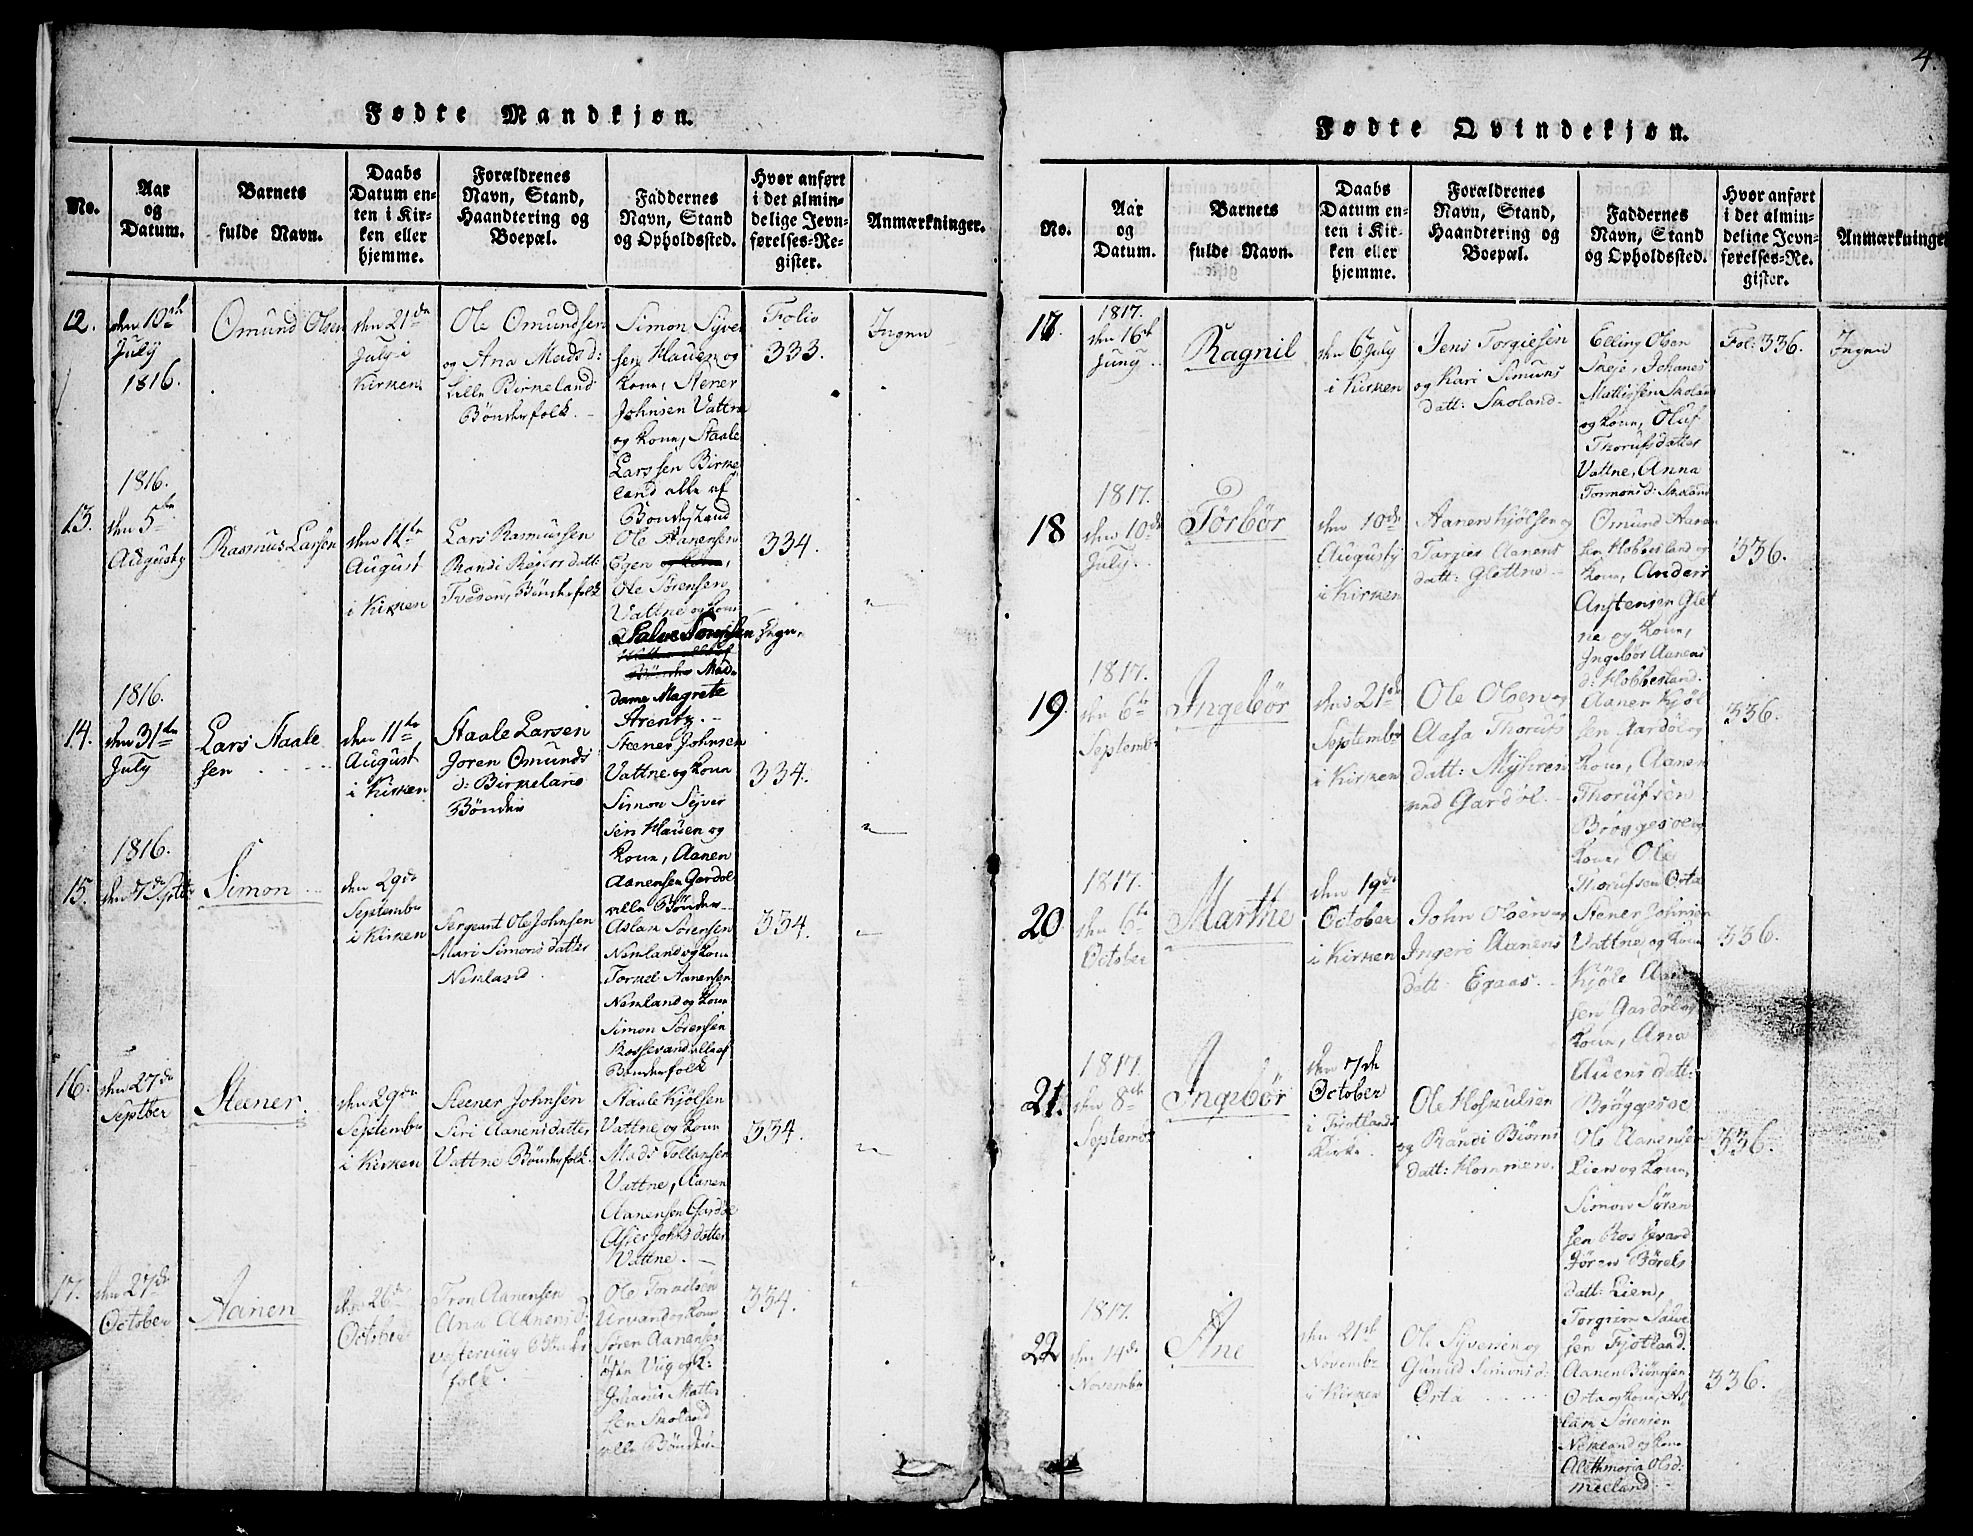 4.
Fødte Mandkjøn.
No.
Aar
og
Datum.
Barnets
fulde Navn.
Daabs
Datum en-
ten i Kir-
ken eller
hjemme.
Forældrenes
Navn, Stand,
Haandtering og
Boepæl.
Faddernes
Navn, Stand
og Opholdssted.
Hvor anført
i det almin-
delige Jevn-
førelses-Re-
gister.
Anmærkninger.
12.
den 19de
July
1816.
Omund Olsen
den 21de
July i
Kirken
Ole Omundsen
og Ana Mads d:
Lille Birkeland
Bønderfolk.
Simon Syver
sen Hauen og
Kone, Stener
Johnsen Vattne
og Kone, Staale
Larssen Birke
land alle af
Bondestand
Folio
333.
Ingen
1816.
13.
den 5te
Augusty
Rasmus Larsen
den 11te
August
i Kirken
Lars Rasmussen
Randi Reiers datt:
Tveden, Bønderfolk
Ole Aanensen
Egen og Kone,
Ole Sørensen
Vattne og Kone
Salve Torgissen
Mad-
dame Magrete
Arentz.
334.
1816.
14.
den 31te
July
Lars Staale
sen
den 11te
August
i Kirken
Staale Larsen
Joren Omunds
d: Birkeland
Bønder
Steener Johnsen
Vattne og Kone
Simon Syver
sen Hauen og
Kone, Aanen
Aanensen Gardøl
alle Bønder
334.
1816.
15.
den 7de Septbr
Simon
den 29de
Septembr
i Kirken
Sergeant Ole Johnsen
Mari Simons datter
Neskland
Aslak Sørensen
Neskland og Kone
Tormel Aanensen
Neskland og Kone
Simon Sørensen
Rossevand alle af
Bønderfolk
334.
16.
den 27de
Septber
Steener
den 29de
Septembr
i Kirken
Steener Johnsen
Siri Aanensdatter
Vattne Bønderfolk
Staale Kjølsen
Vattne og Kone
Mads Tollaksen
Vattne, Aanen
Aanensen Gardøl
Johnsdatter
Vattne.
334.
17.
den 27de
October
Aanen
den 26de
October
Tron Aanensen
Ana Aanens d:
Bønder
folk.
Ole
og Kone
Søren Aanensen
og K:
Johanes Matis
sen Skoland
alle Bønder
334.
Fødte Qvindekjøn.
No.
Aar
og
Datum.
Barnets
fulde Navn.
Daabs
Datum en-
ten i Kir-
ken eller
hjemme.
Forældrenes
Navn, Stand,
Haandtering og
Boepæl.
Faddernes
Navn, Stand
og Opholdssted.
Hvor anført
i det almin-
delige Jevn-
førelses-Re-
gister.
Anmærkninger
17.
1817.
den 16de
Juny
Ragnil
den 6 July
i Kirken
Jens Torgiesen
og Kari Simuns
datt: Skoland
Elling Olsen
Skeje, Johanes
Mattissen Skolan
og Kone, Oluf
Thorufsdatter
Vattne, Anna
Tormons d: Skoland
Fol: 336.
Ingen
1817.
18
den 10de
July.
Torbør
den 10de
Augusty
i Kirken
Aanen Kjølsen og
Targier Aanens
datt: Glettne
Omund Aanen
sen Hobbesland og
Kone, Anders
Anstensen Glet
ne og Kone,
Ingebør Aanens
d: Hobbesland.
336.
1817.
19.
den 6te
Septembr
Ingebør
den 21de
Septembr
i Kirken
Ole Olsen og
Aasa Thorufs
datt: Myhren
ved Gardøl.
Aanen Kjøl
sen Gardøl og
Kone, Aanen
Thorufsen
Brøggesoe og
Kone, Ole
Thorufsen Orta
336.
1817.
20
den 6te
October
Marthe
den 19de
October
i Kirken
John Olsen og
Ingeri Aanens
datt: Egaas.
Stener Johnsen
Vattne og Kone
Kjøle Aanen
sen Gardøl og
Kone, Ana
datt:
Brøggesoe
336.
1817.
21.
den 8de
Septembr
Ingebør
den 7de
October
i Fjotland
Kirke.
Ole Hoskulsen
og Randi Biørns
datt: Hommen.
Ole Aanensen
Lien og Kone,
Simon Søren
sen Rossevand
Jøren Børels
datt: Lien,
Torgiem Salve
sen Fjotland.
336.
1817.
22
den 14de
Novembr
Ane
den 21de
Novembr
i Kirken
Ole Syversen og
Gunild Simons d:
Orta
Aanen Biørnsen
Orta og Kone, As
lak Sørensen
Neskland og Kone
Alethmaria Olsd:
meeland.
336.